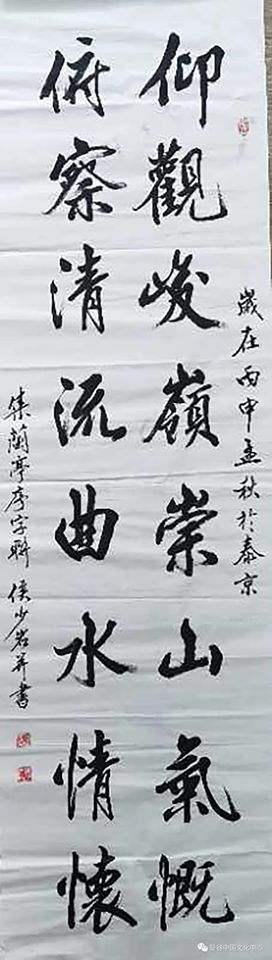 歲在丙申孟秋於泰京
仰觀峻嶺崇山氣慨
俯察清流曲水情懷
集蘭亭序字聯 侯少岩并書
曼谷中国文化中心